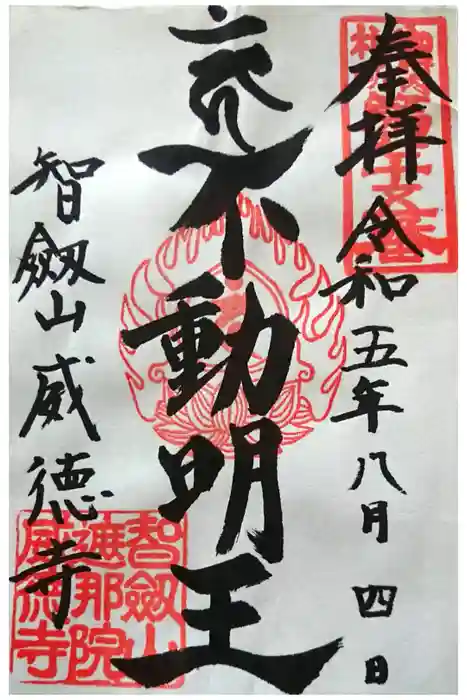 奉拝 令和五年八月四日
不動明王
智劔山威徳寺
智劔山
遮那院
威徳寺